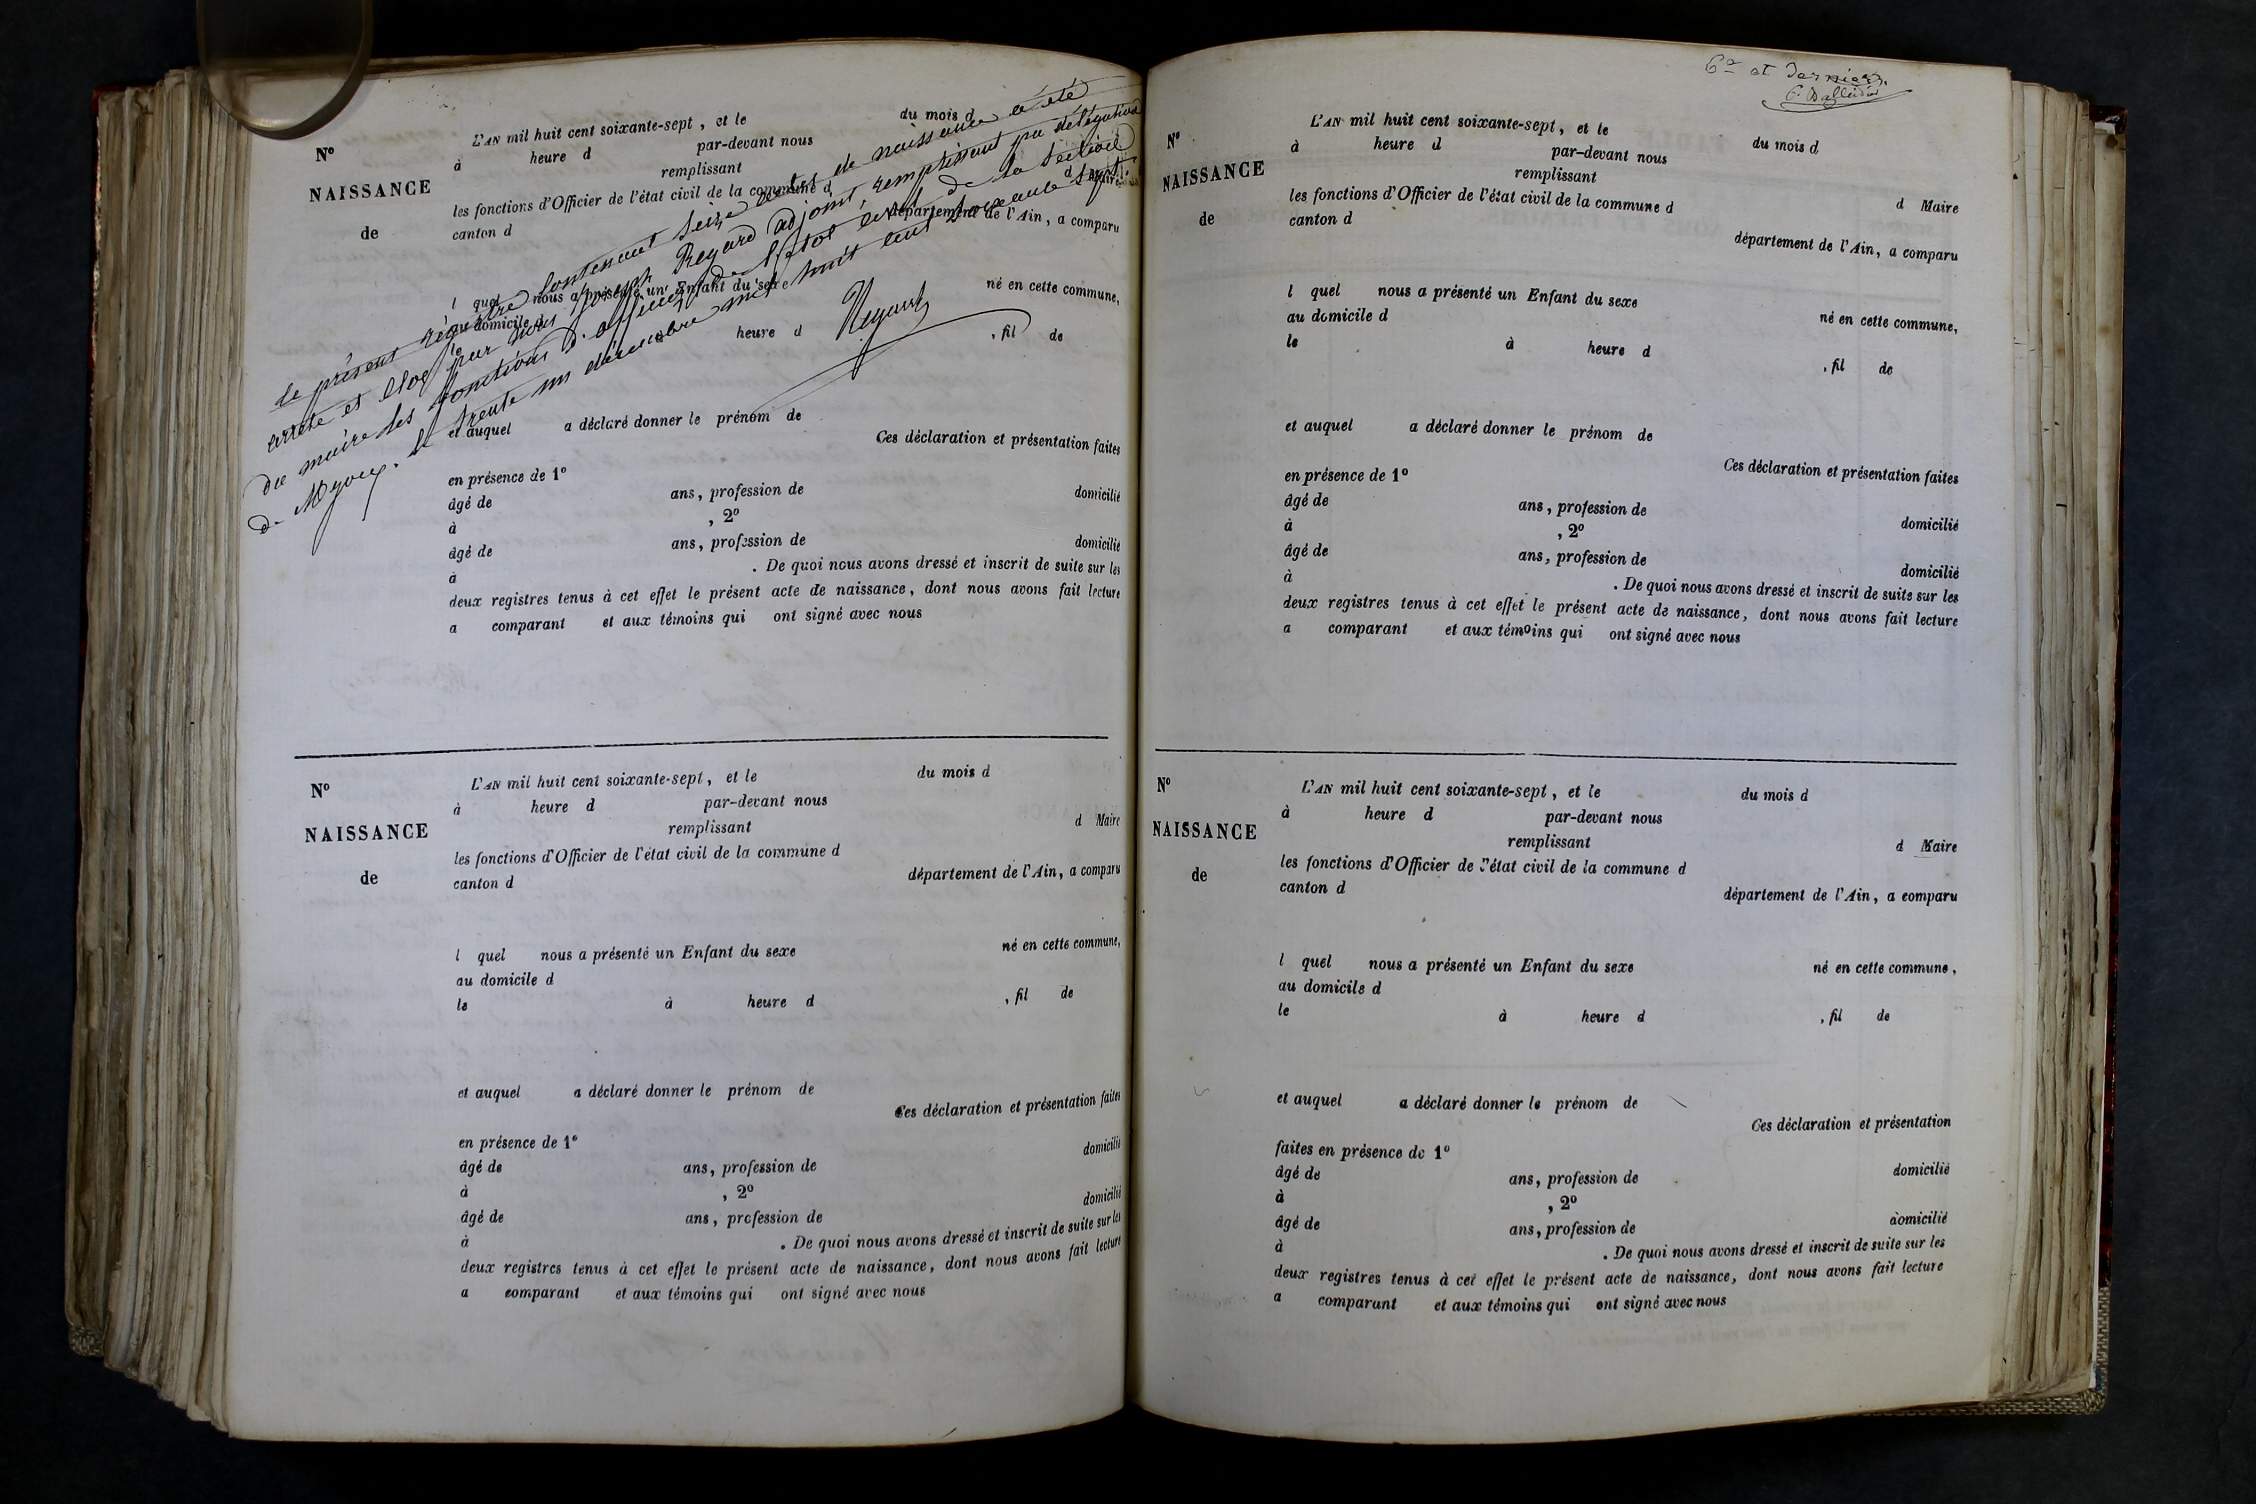 Le présent régistre Contenant Seize actes de naissance a été
arrêté et clos par nous Joseph Regard adjoint, remplissant par délégation
du maire les fonctions d'officier de l'état civil de la section
de le trente un décembre mil huit cent soixante sept.
Regard
Nº
NAISSANCE
de
L'AN mil huit cent soixante-sept, et le du mois d
à heure d par-devant nous
remplissant d Maire
les fonctions d'Officier de l'état civil de la commune d
canton d département de l'Ain, a comparu
l quel nous a présenté un Enfant du sexe né en cette commune,
au domicile d
le à heure d , fil de
et auquel a déclaré donner le prénom de
Ces déclaration et présentation faites
en présence de 1º
âgé de ans, profession de domicilié
à , 2º
âgé de ans, profession de domicilié
à . De quoi nous avons dressé et inscrit de suite sur les
deux registres tenus à cet effet le présent acte de naissance, dont nous avons fait lecture
a comparant et aux témoins qui ont signé avec nous
Nº
NAISSANCE
de
L'AN mil huit cent soixante-sept, et le du mois d
à heure d par-devant nous
remplissant d Maire
les fonctions d'Officier de l'état civil de la commune d
canton d département de l'Ain, a comparu
l quel nous a présenté un Enfant du sexe né en cette commune,
au domicile d
le à heure d , fil de
et auquel a déclaré donner le prénom de
Ces déclaration et présentation faites
en présence de 1º
âgé de ans, profession de domicilié
à , 2º
âgé de ans, profession de domicilié
à . De quoi nous avons dressé et inscrit de suite sur les
deux registres tenus à cet effet le présent acte de naissance, dont nous avons fait lecture
a comparant et aux témoins qui ont signé avec nous
6e et dernier.
Nº
NAISSANCE
de
L'AN mil huit cent soixante-sept, et le du mois d
à heure d par-devant nous
remplissant d Maire
les fonctions d'Officier de l'état civil de la commune d
canton d département de l'Ain, a comparu
l quel nous a présenté un Enfant du sexe né en cette commune,
au domicile d
le à heure d , fil de
et auquel a déclaré donner le prénom de
Ces déclaration et présentation faites
en présence de 1º
âgé de ans, profession de domicilié
à , 2º
âgé de ans, profession de domicilié
à . De quoi nous avons dressé et inscrit de suite sur les
deux registres tenus à cet effet le présent acte de naissance, dont nous avons fait lecture
a comparant et aux témoins qui ont signé avec nous
Nº
NAISSANCE
de
L'AN mil huit cent soixante-sept, et le du mois d
à heure d par-devant nous
remplissant d Maire
les fonctions d'Officier de l'état civil de la commune d
canton d département de l'Ain, a comparu
l quel nous a présenté un Enfant du sexe né en cette commune,
au domicile d
le à heure d , fil de
et auquel a déclaré donner le prénom de
Ces déclaration et présentation
faites en présence de 1º
âgé de ans, profession de domicilié
à , 2º
âgé de ans, profession de domicilié
à . De quoi nous avons dressé et inscrit de suite sur les
deux registres tenus à cet effet le présent acte de naissance, dont nous avons fait lecture
a comparant et aux témoins qui ont signé avec nous